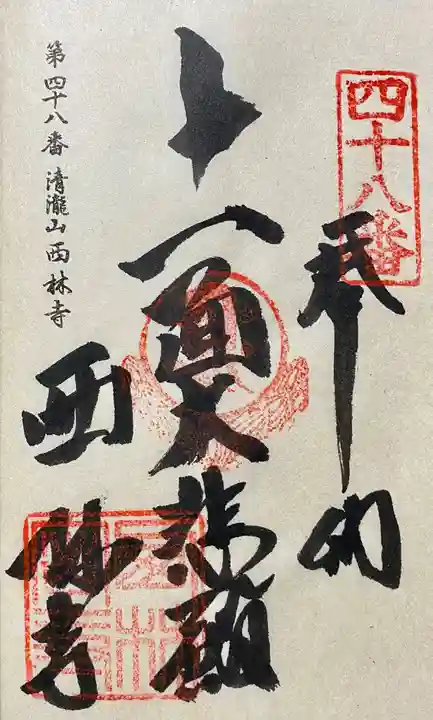 四十八番
奉納
十一面大悲殿
西林寺
第四十八番 清瀧山 西林寺